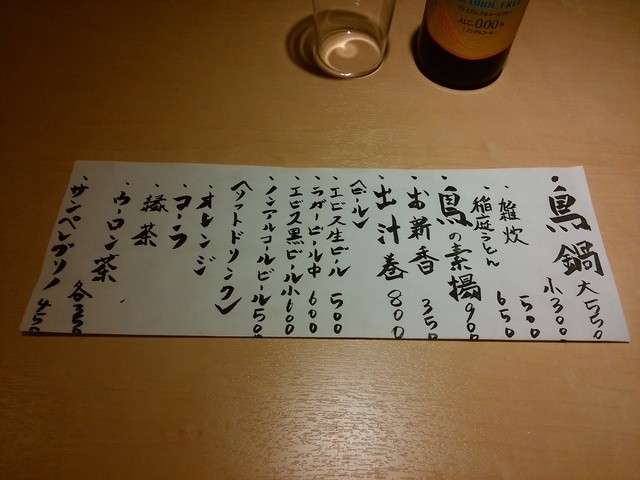 ALCOHOL FREE
ALC.0.00%
・鳥鍋 大5550
小3000
・雑炊 500
・稲庭うどん 650
・鳥の素揚 900
・お新香 350
・出汁巻 800
〈ビール〉
・エビス生ビール 500
・ラガービール中 600
・エビス黒ビール小 600
・ノンアルコールビール 500
〈ソフトドリンク〉
・オレンジ
・コーラ
・緑茶
・ウーロン茶 各350
・サンペレグリノ 450